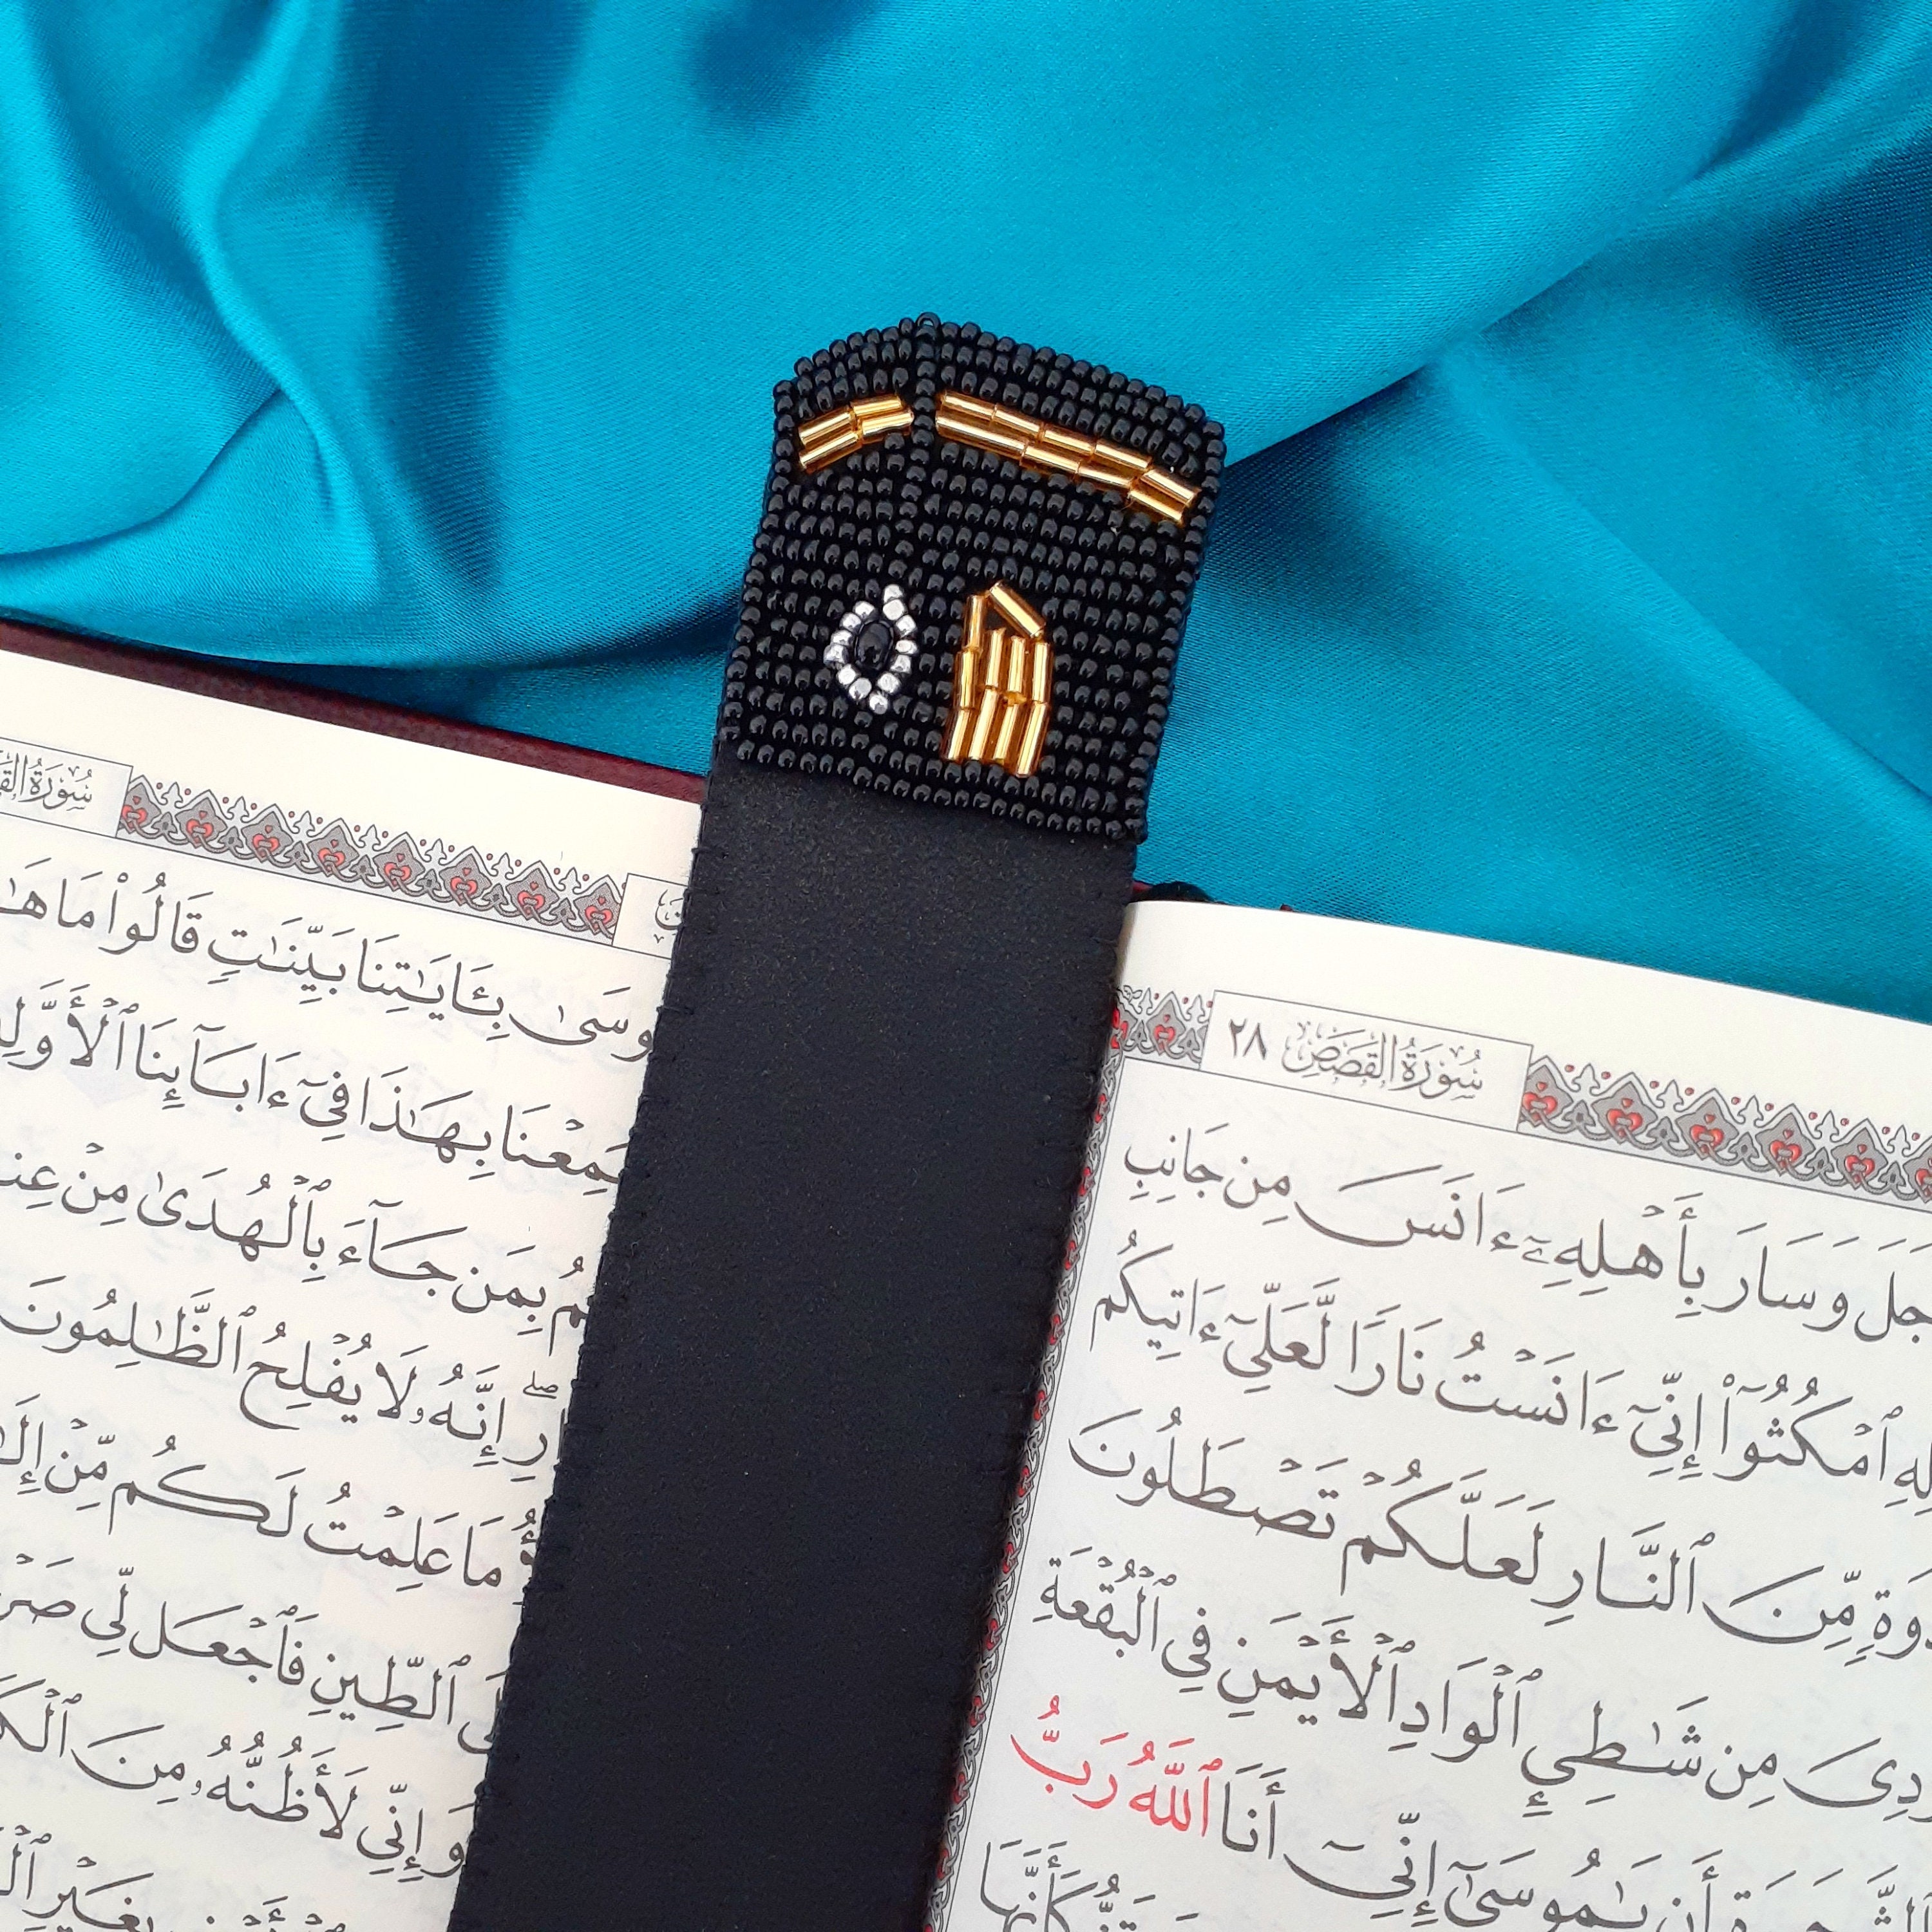 سُورَةُ القَصَصِ ٢٨
وَسَارَ بِأَهْلِهِۦٓ ءَانَسَ مِن جَانِبِ
ٱمْكُثُوٓا۟ إِنِّىٓ ءَانَسْتُ نَارًا لَّعَلِّىٓ ءَاتِيكُم
مِّنَ ٱلنَّارِ لَعَلَّكُمْ تَصْطَلُونَ
مِن شَٰطِئِ ٱلْوَادِ ٱلْأَيْمَنِ فِى ٱلْبُقْعَةِ
أَن يَٰمُوسَىٰٓ إِنِّىٓ أَنَا ٱللَّهُ رَبُّ
كَأَنَّهَا
سُورَةُ
بِـَٔايَٰتِنَا بَيِّنَٰتٍ قَالُوا۟ مَا
بِهَٰذَا فِىٓ ءَابَآئِنَا
بِمَن جَآءَ بِٱلْهُدَىٰ مِنْ
إِنَّهُۥ لَا يُفْلِحُ ٱلظَّٰلِمُونَ
مَا عَلِمْتُ لَكُم مِّنْ
ٱلطِّينِ فَٱجْعَل لِّى
وَإِنِّى لَأَظُنُّهُۥ مِنَ
بِغَيْرِ